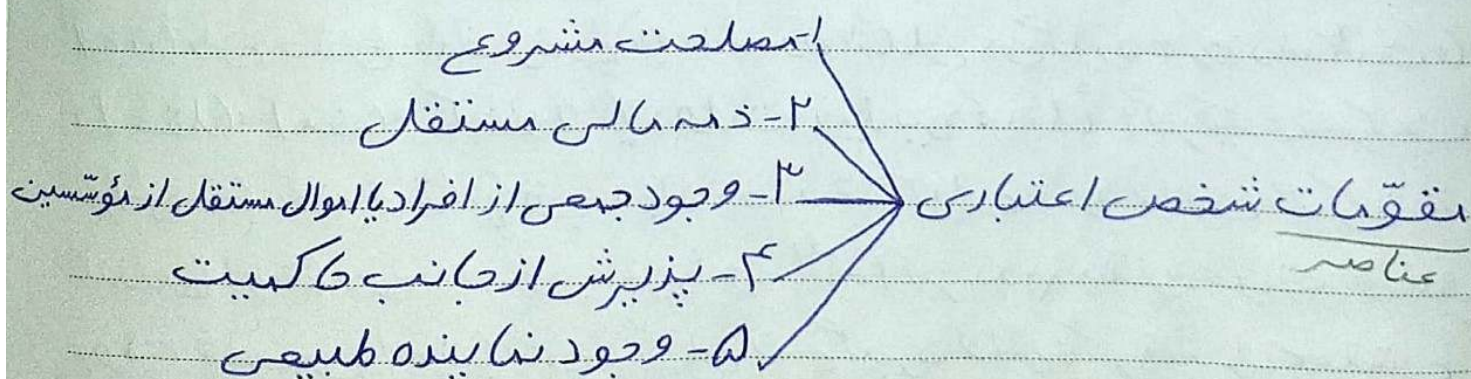 مقوّمات شخص اعتباری
عناصر
۱- مصلحت مشروع
۲- ذمه مالی مستقل
۳- وجود جمعی از افراد یا اموال مستقل از مؤسّسین
۴- پذیرش از جانب حاکمیت
۵- وجود نماینده طبیعی